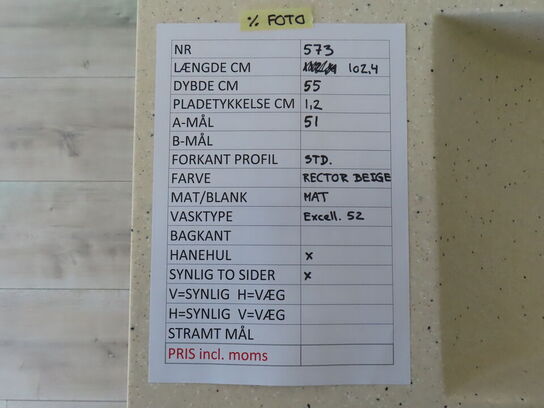 % FOTO
NR 573
LÆNGDE CM 102,4
DYBDE CM 55
PLADETYKKELSE CM 1,2
A-MÅL 51
B-MÅL
FORKANT PROFIL STD.
FARVE RECTOR BEIGE
MAT/BLANK MAT
VASKTYPE Excell. 52
BAGKANT
HANEHUL x
SYNLIG TO SIDER x
V=SYNLIG H=VÆG
H=SYNLIG V=VÆG
STRAMT MÅL
PRIS incl. moms